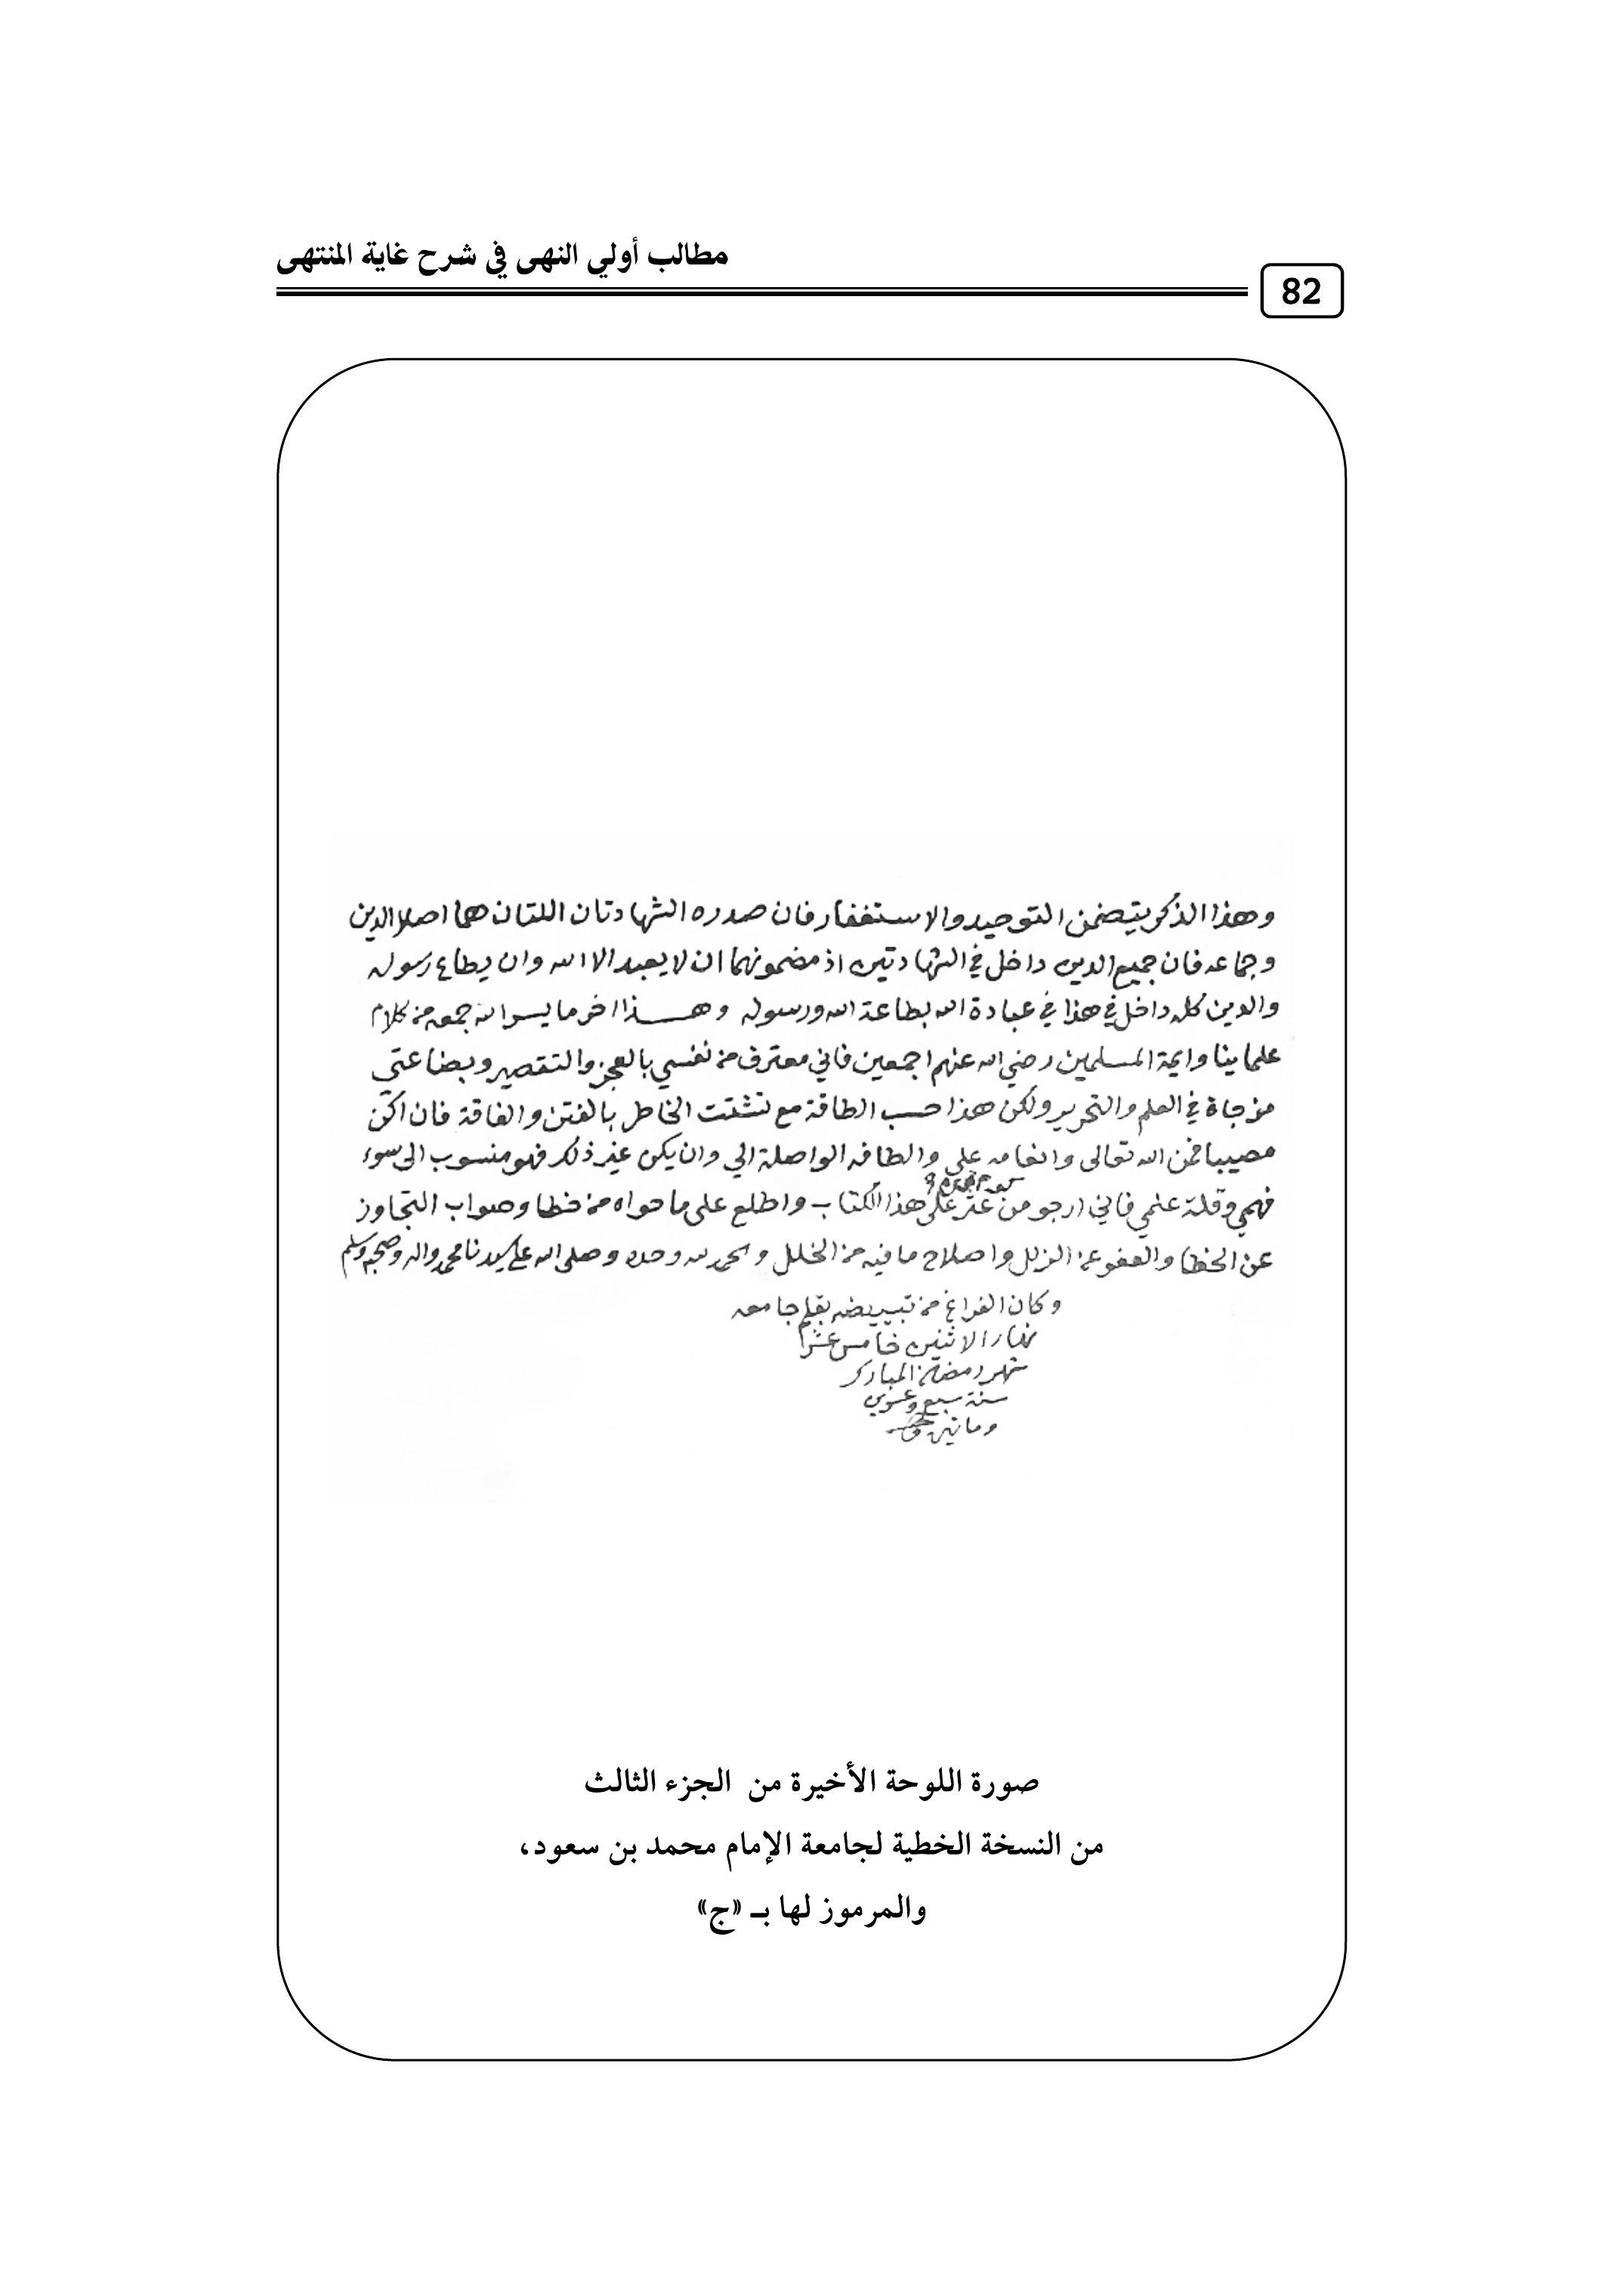 مطالب أولي النهى في شرح غاية المنتهى
82
وهذا الذكر يتضمن التوحيد والاستغفار فان صدره الشهادتان اللتان هما اصلا الدين
وجماعه فان جميع الدين داخل في الشهادتين اذ مضمونهما ان لا يعبد الا الله وان يطاع رسوله
والدين كله داخل في هذا في عبادة الله بطاعة الله ورسوله وهذا اخر ما يسر الله جمعه من كلام
علماينا وايمة المسلمين رضي الله عنهم اجمعين فاني معترف من نفسي بالعجز والتقصير وبضاعتي
مزجاة في العلم والتحرير ولكن هذا حسب الطاقة مع تشتت الخاطر بالفتن والفاقة فان اكن
مصيبا فمن الله تعالى وانعامه علي والطافه الواصلة الي وان يكن غير ذلك فهو منسوب الى سوء
فهمي وقلة علمي فاني ارجو من عثر على هذا الكتاب واطلع على ما حواه من خطا وصواب التجاوز
عن الخطا والعفو عن الزلل واصلاح ما فيه من الخلل والحمد لله وحده وصلى الله على سيدنا محمد واله وصحبه وسلم
وكان الفراغ من تبييضه بقلم جامعه
نهار الاثنين خامس عشر
شهر رمضان المبارك
سنة سبع وعشرين
وماتين
صورة اللوحة الأخيرة من الجزء الثالث
من النسخة الخطية لجامعة الإمام محمد بن سعود،
والمرموز لها بـ «ج»